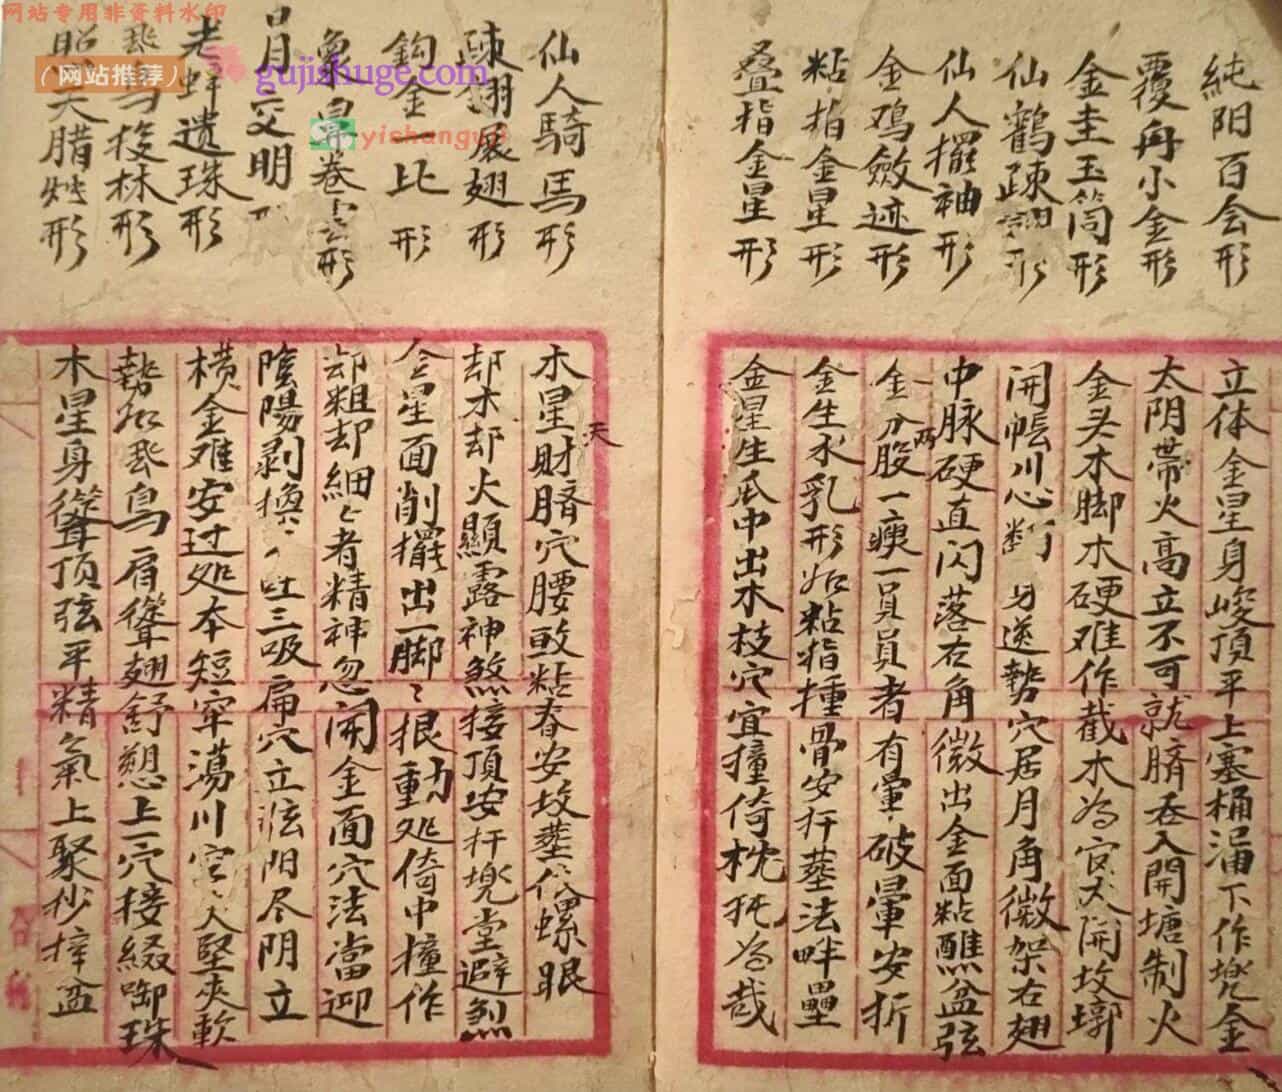 网站专用非资料水印
(网站推荐)
gujishuge.com
yishanguji
純阳百会形
覆舟小金形
金圭玉筒形
仙鶴疎翅形
仙人擺袖形
金鸡斂迹形
粘指金星形
叠指金星形
立体金星身峻頂平上塞桶涌下作兠金
太阴帶火高立不可就臍吞入開塘制火
金头木脚木硬难作截木为官大開坟墎
開帳川心断送勢穴居月角微架右翅
中脉硬直闪落右角微出金面粘醮盆弦
金分两股一瘐一員員者有暈破暈安折
金生水乳形如粘指揰骨安扦塟法畔壘
金星生瓜中出木枝穴宜撞倚枕死为哉
仙人騎馬形
疎翅展翅形
鈎金比形
象鼻卷形
月交明
老蚌遺珠形
飛鸟投林形
天腊烛形
木星財臍穴腰敢粘春安坟塟螺眼
天
却木却火顯露神煞接頂安扦兠堂避煞
金星面削擺出一脚〻报動处倚中撞作
却粗却細〻者精神忽開金面穴法當迎
陰陽剥換吐三吸扁穴立弦阳尽阴立
横金难安过处本短窂蕩川堅夾軟
勢如飛鸟肩聳翅舒趐上一穴接綴啣珠
木星身聳頂弦平精氣上聚杪擇盆